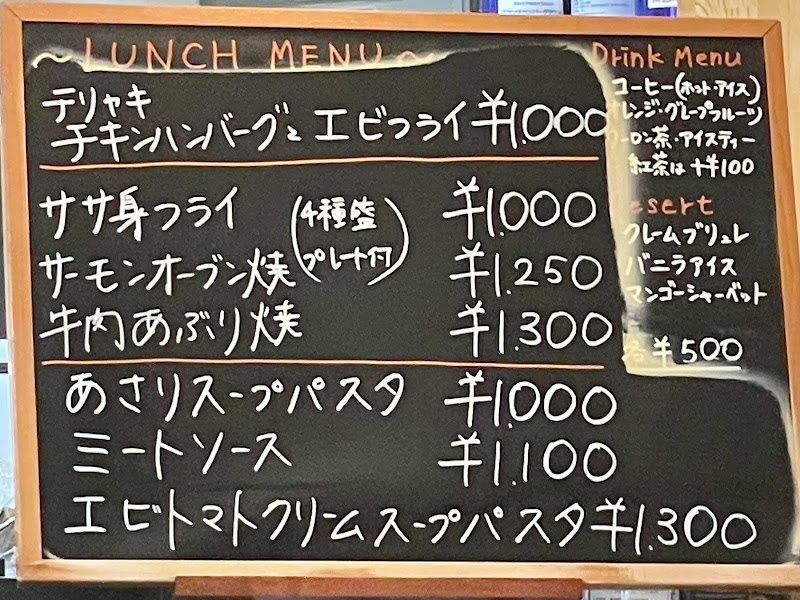 ~LUNCH MENU~
テリヤキ
チキンハンバーグとエビフライ ¥1.000
ササ身フライ ¥1.000
(4種盛
プレート付)
サーモンオーブン焼 ¥1.250
牛肉あぶり焼 ¥1.300
あさりスープパスタ ¥1.000
ミートソース ¥1.100
エビトマトクリームスープパスタ ¥1.300
Drink Menu
コーヒー(ホット・アイス)
レンジ・グレープフルーツ
ーロン茶・アイスティー
紅茶は+¥100
esert
クレームブリュレ
バニラアイス
マンゴーシャーベット
各¥500